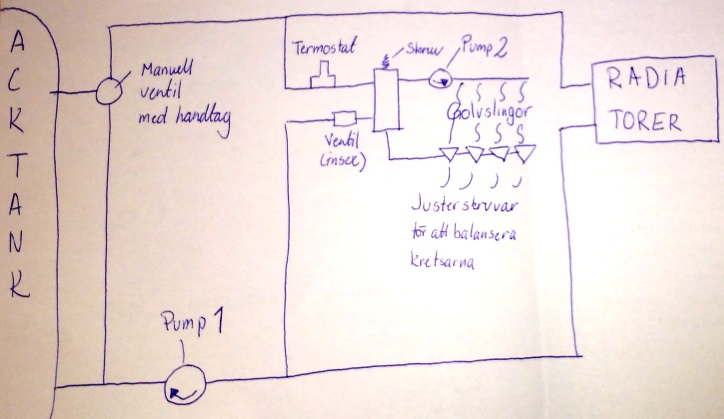 A
C
K
T
A
N
K
Manuell
ventil
med handtag
Termostat
Skruv
Pump 2
Golvslingor
Ventil
(insex)
Justerskruvar
för att balansera
kretsarna
RADIA
TORER
Pump 1